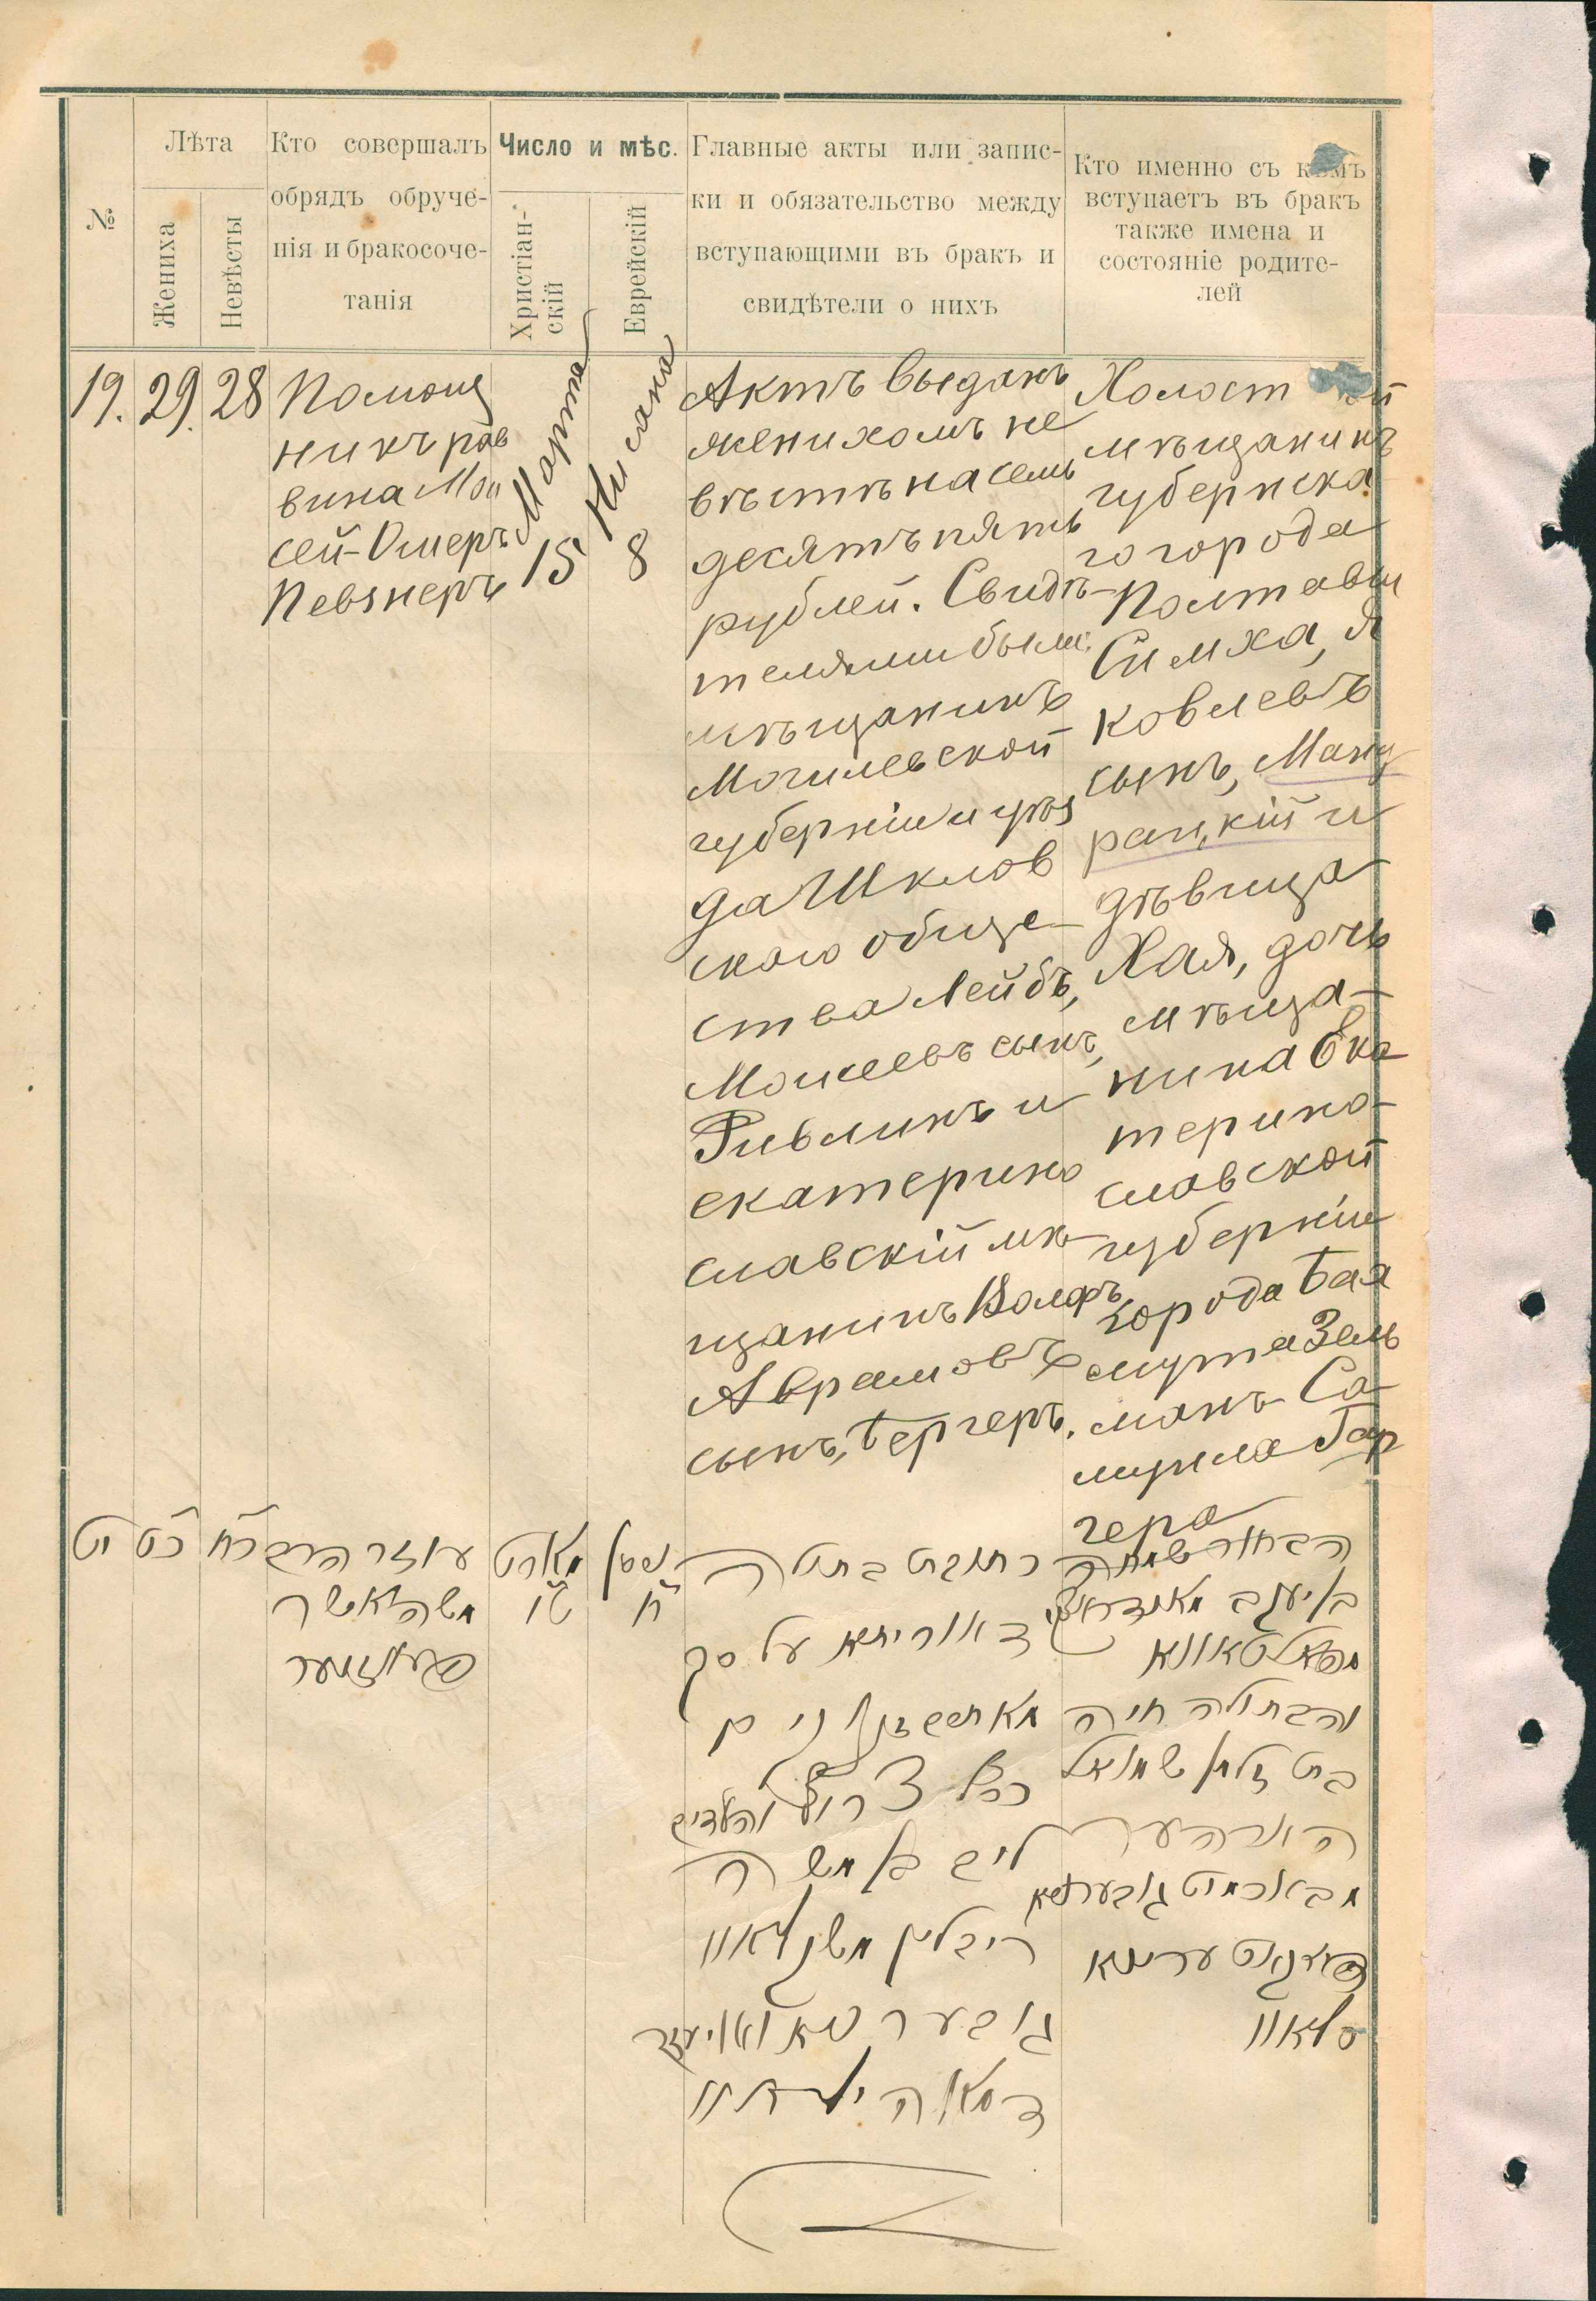 №
Лѣта
Жениха
Невѣсты
Кто совершалъ
обрядъ обруче-
нія и бракосоче-
танія
Число и мѣс.
Христіан-
скій
Еврейскій
Главные акты или запис-
ки и обязательство между
вступающими въ бракъ и
свидѣтели о нихъ
Кто именно съ кѣмъ
вступаетъ въ бракъ
также имена и
состояніе родите-
лей
19.
29.
28
Помощ
никъ рав
вина Мои
сей-Ошеръ
Певзнеръ
Марта
15
Нисана
8
Актъ выданъ
женихомъ не
вѣстѣ на семь
десятъ пять
рублей. Свидѣ-
телями были:
мѣщанинъ
Могилевской
губерніи и уѣз
да Шклов
скаго обще-
ства Лейбъ,
Моисеевъ сынъ,
Ривлинъ и
екатерино
славскій мѣ-
щанинъ Волфъ
Аврамовъ
сынъ, Бергеръ.
Холост ой
мѣщанинъ
губернска
го города
Полтавы
Симха, Я
ковлевъ
сынъ, Манд
рацкій и
дѣвица
Хая, дочь
мѣща-
нина Ека
терино-
славской
губерніи
города Бах
мута Зель
манъ Са-
муила Гар
гера
יט
כט
כח
עוזר הרב
משה אשר
פעווזנער
מארט
טו
ניסן
ח
כתובת בתולה
דאורייתא על סך
ליב בן משה
ריבלין משקלאוו
הבחור שמחה
בן יעקב
מפאלטאווא
והבתולה חיה
בת זלמן שמואל